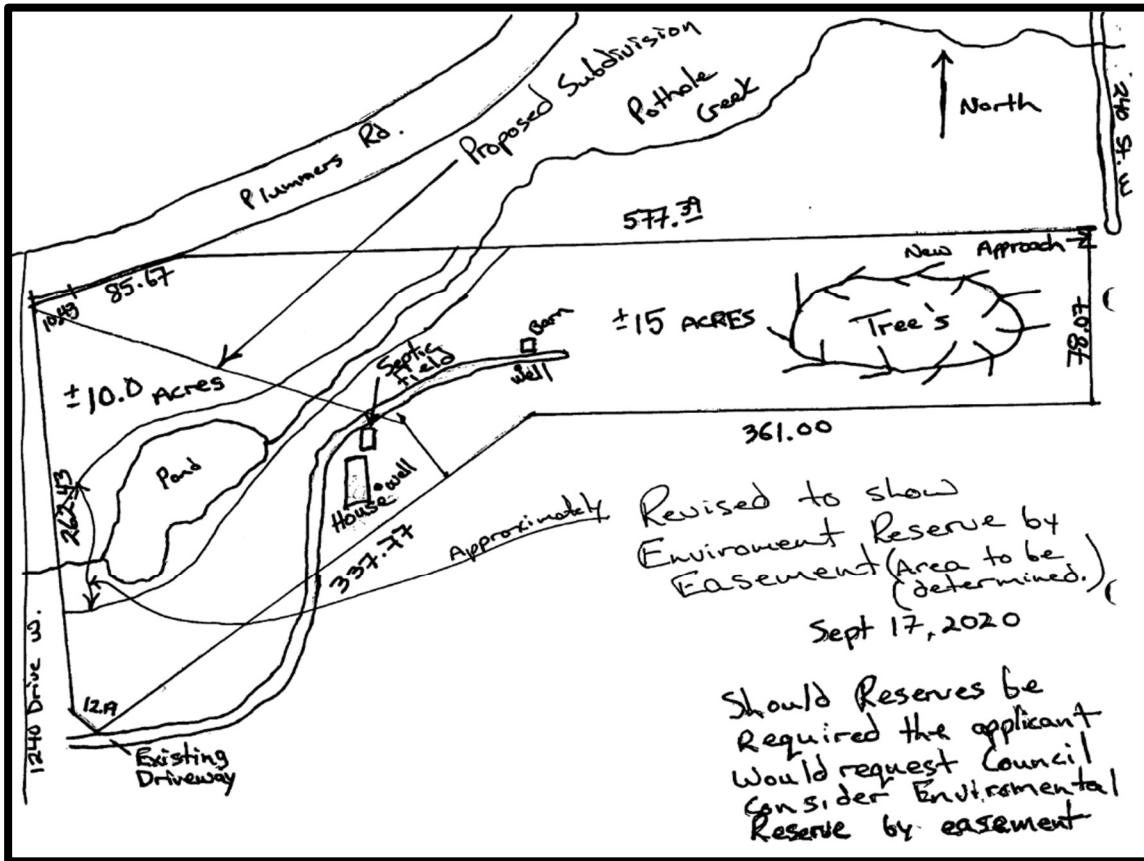 Plummers Rd.
Proposed Subdivision
Pothole
Creek
North
240 St. W
577.39
New Approach
85.67
10.43
±10.0 Acres
±15 ACRES
Tree's
78.07
Barn
Well
Septic
field
Pond
House
well
262.43
337.77
361.00
Approximately
Revised to show
Enviroment Reserve by
Easement (Area to be
determined.)
Sept 17, 2020
12.19
Existing
Driveway
1240 Drive W.
Should Reserves be
Required the applicant
Would request Council
Consider Enviromental
Reserve by easement